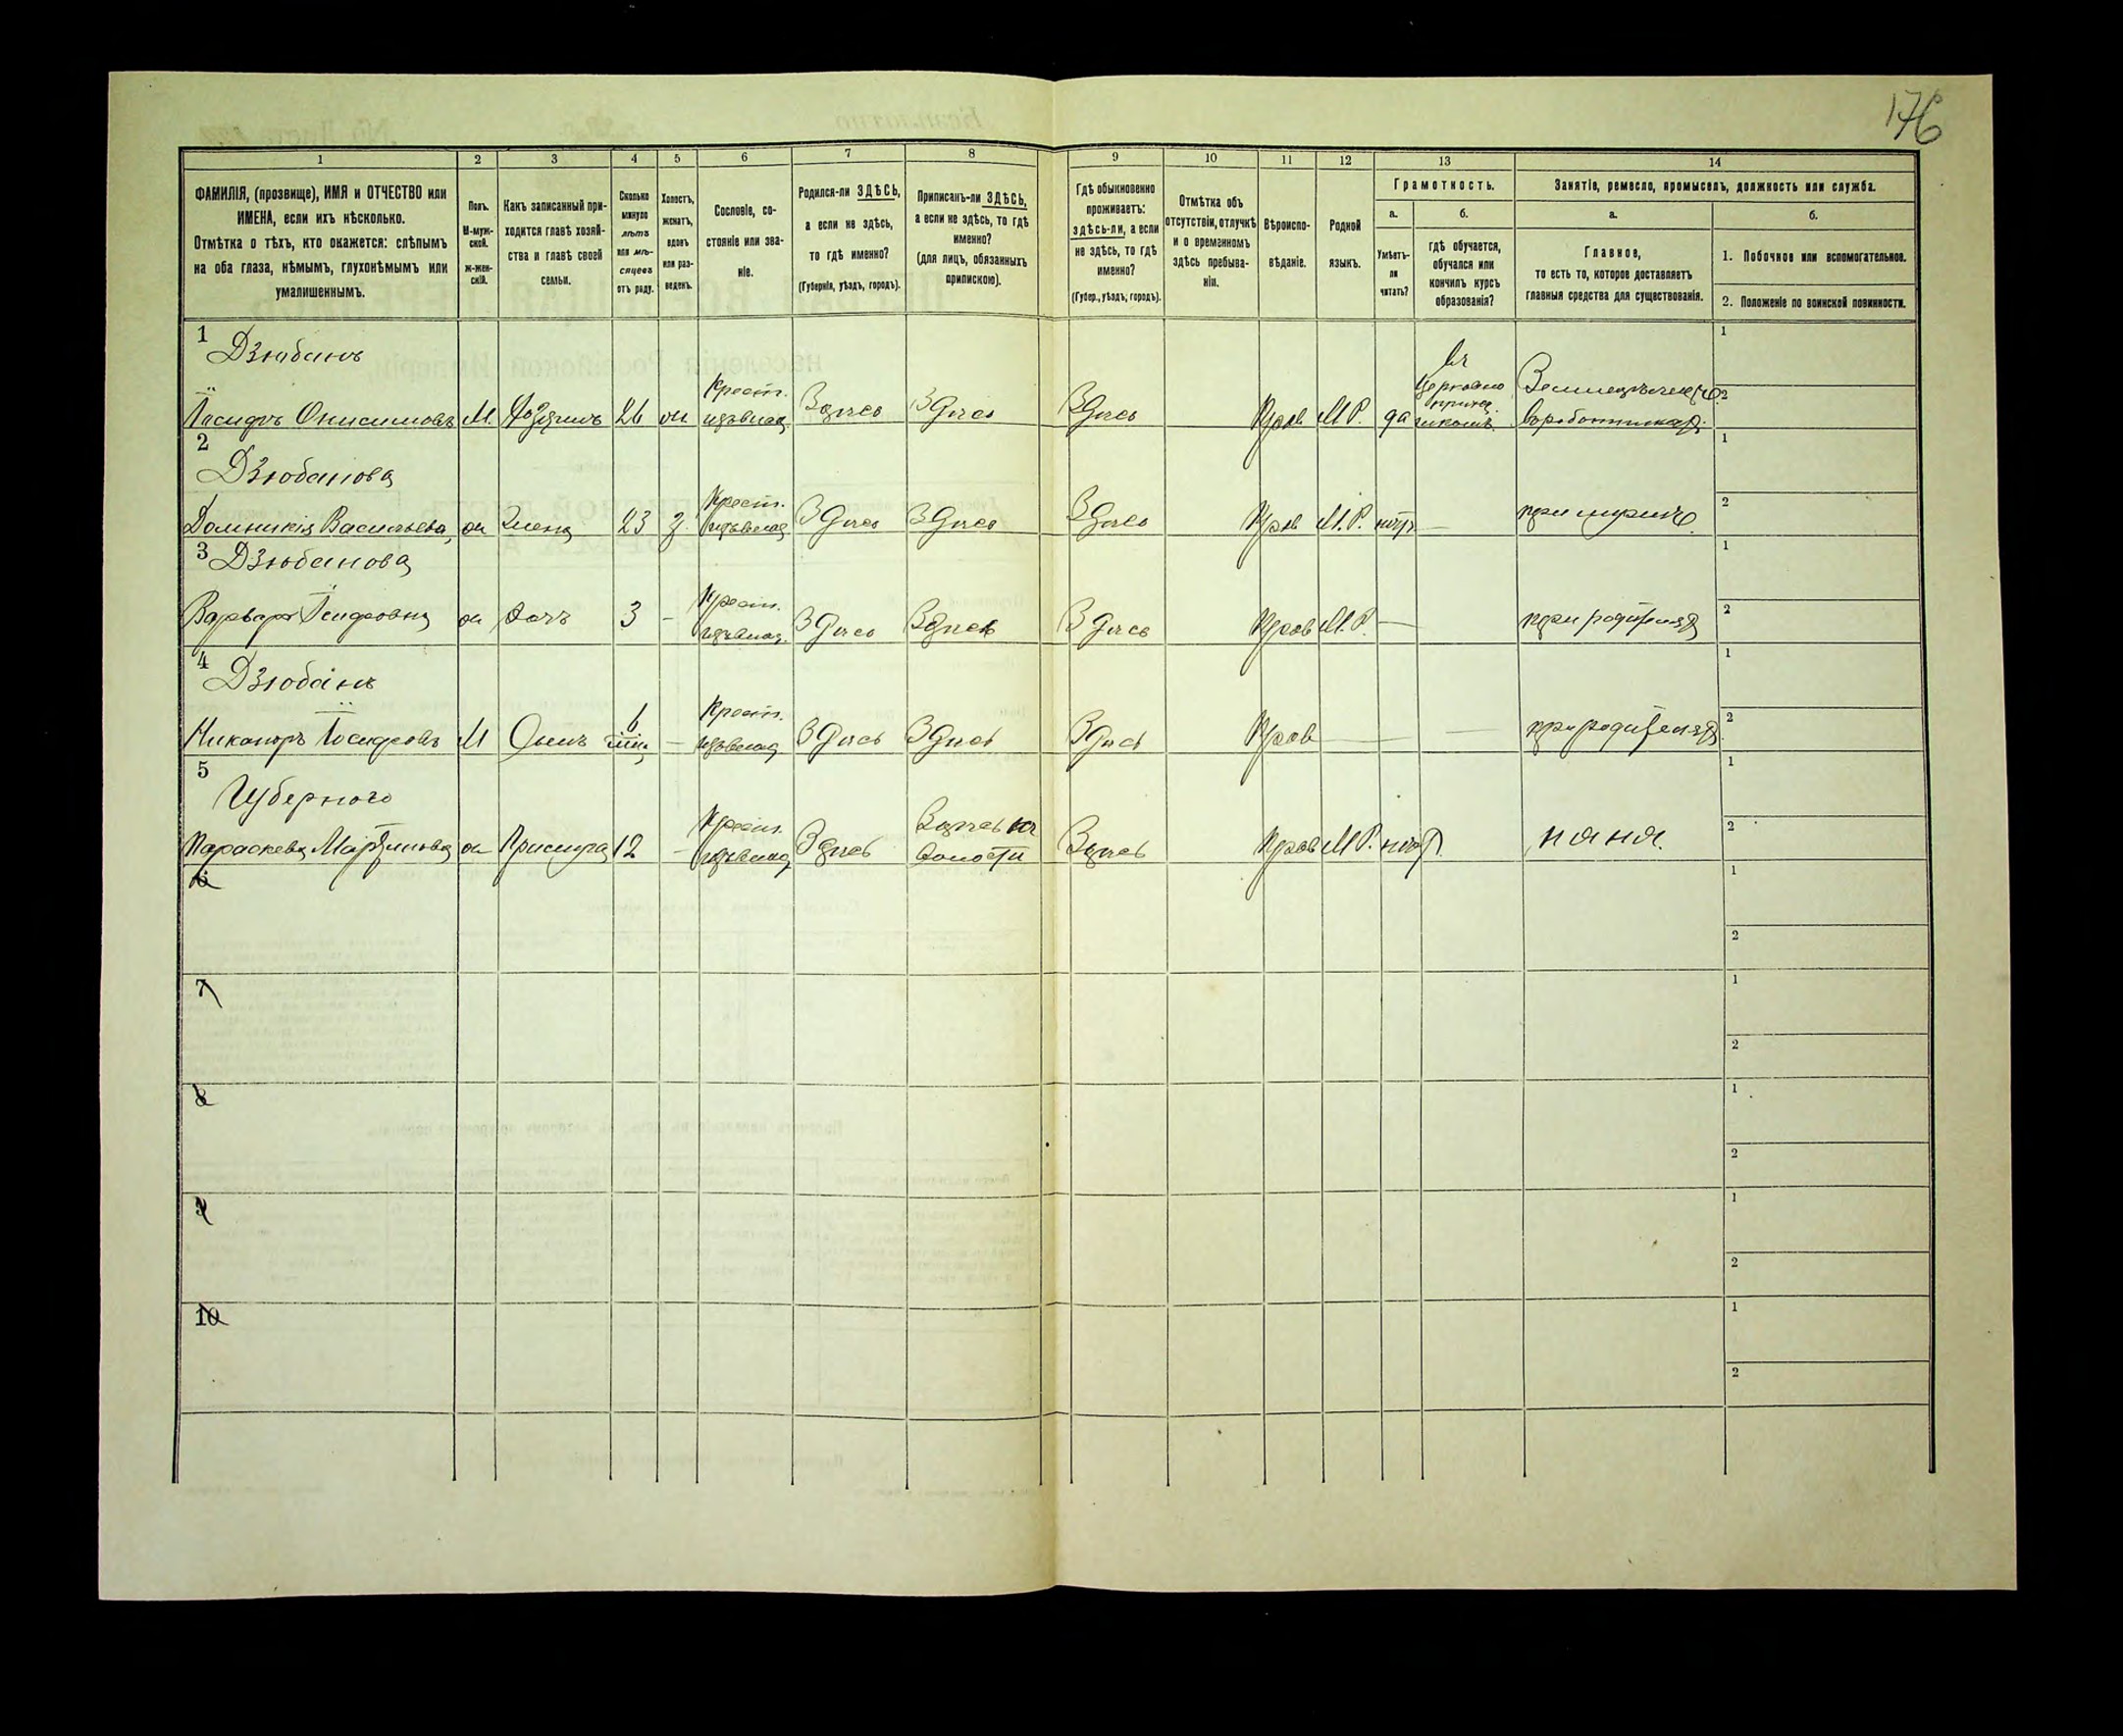 176
1
2
3
4
5
6
7
8
9
10
11
12
13
14
ФАМИЛІЯ, (прозвище), ИМЯ и ОТЧЕСТВО или
ИМЕНА, если ихъ нѣсколько.
Отмѣтка о тѣхъ, кто окажется: слѣпымъ
на оба глаза, нѣмымъ, глухонѣмымъ или
умалишеннымъ.
Полъ.
М-муж-
ской.
Ж-жен-
скій.
Какъ записанный при-
ходится главѣ хозяй-
ства и главѣ своей
семьи.
Сколько
минуло
лѣтъ
или мѣ-
сяцевъ
отъ роду.
Холостъ,
женатъ,
вдовъ
или раз-
веденъ.
Сословіе, со-
стояніе или зва-
ніе.
Родился-ли ЗДѢСЬ,
а если не здѣсь,
то гдѣ именно?
(Губернія, уѣздъ, городъ).
Приписанъ-ли ЗДѢСЬ,
а если не здѣсь, то гдѣ
именно?
(для лицъ, обязанныхъ
припискою).
Гдѣ обыкновенно
проживаетъ:
здѣсь-ли, а если
не здѣсь, то гдѣ
именно?
(Губер., уѣздъ, городъ).
Отмѣтка объ
отсутствіи, отлучкѣ
и о временномъ
здѣсь пребыва-
ніи.
Вѣроиспо-
вѣданіе.
Родной
языкъ.
Грамотность.
а.
Умѣетъ-
ли
читать?
б.
гдѣ обучается,
обучался или
кончилъ курсъ
образованія?
Занятіе, ремесло, промыселъ, должность или служба.
а.
Главное,
то есть то, которое доставляетъ
главныя средства для существованія.
б.
1. Побочное или вспомогательное.
2. Положеніе по воинской повинности.
1
Дзюбанъ
Іосифъ Онисимовъ М. Хозяинъ 26 ж. Крест. Здѣсь Здѣсь Здѣсь Прав М.Р. да въ Церковно приход. школѣ
1
2
2
Дзюбанова
Домникія Васильева ж Жена 23 з. Крест. Здѣсь Здѣсь Здѣсь Прав М.Р. нѣтъ — при мужѣ
1
2
3
Дзюбанова
Варвара Іосифовна ж дочь 3 — Крест. Здѣсь Здѣсь Здѣсь Прав М.Р. — при родителяхъ
1
2
4
Дзюбанъ
Никаноръ Іосифовъ М Сынъ 6 мѣс — Крест. Здѣсь Здѣсь Здѣсь Прав — при родителяхъ
1
2
5
Губерного
Параскева Мартинова ж Прислуга 12 — Крест. Здѣсь Здѣсь въ волости Здѣсь Прав М.Р. нѣтъ няня.
1
2
6
1
2
7
1
2
8
1
2
9
1
2
10
1
2